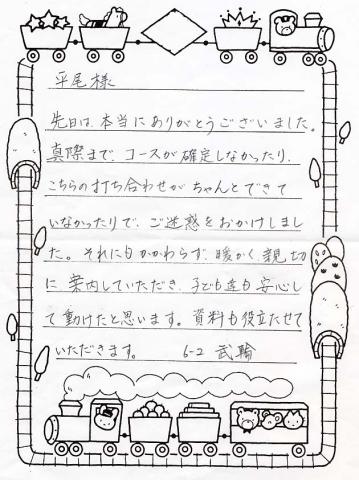 平尾様
先日は、本当にありがとうございました。
真際まで、コースが確定しなかったり、
こちらの打ち合わせがちゃんとできて
いなかったりで、ご迷惑をおかけしまし
た。それにもかかわらず、暖かく、親切
に案内していただき、子ども達も安心し
て動けたと思います。資料も役立たせて
いただきます。 6-2 武輪